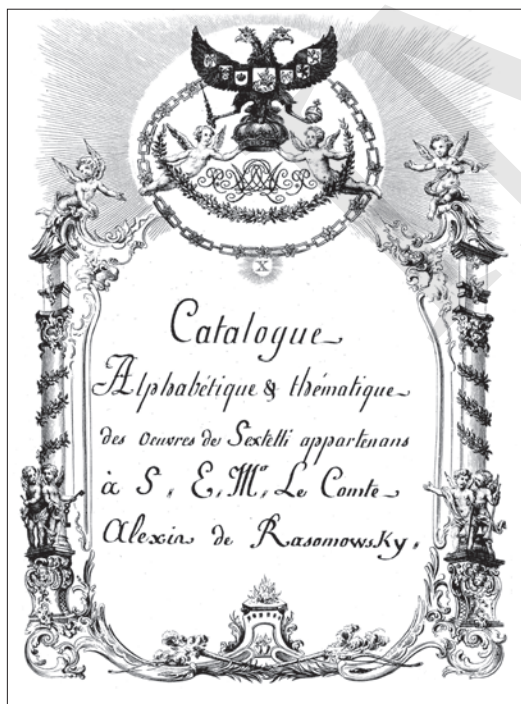 X
Catalogue
Alphabétique & thématique
des Oeuvres de Sextetti appartenans
à S. E. Mr. Le Comte
Alexis de Rasomowsky.